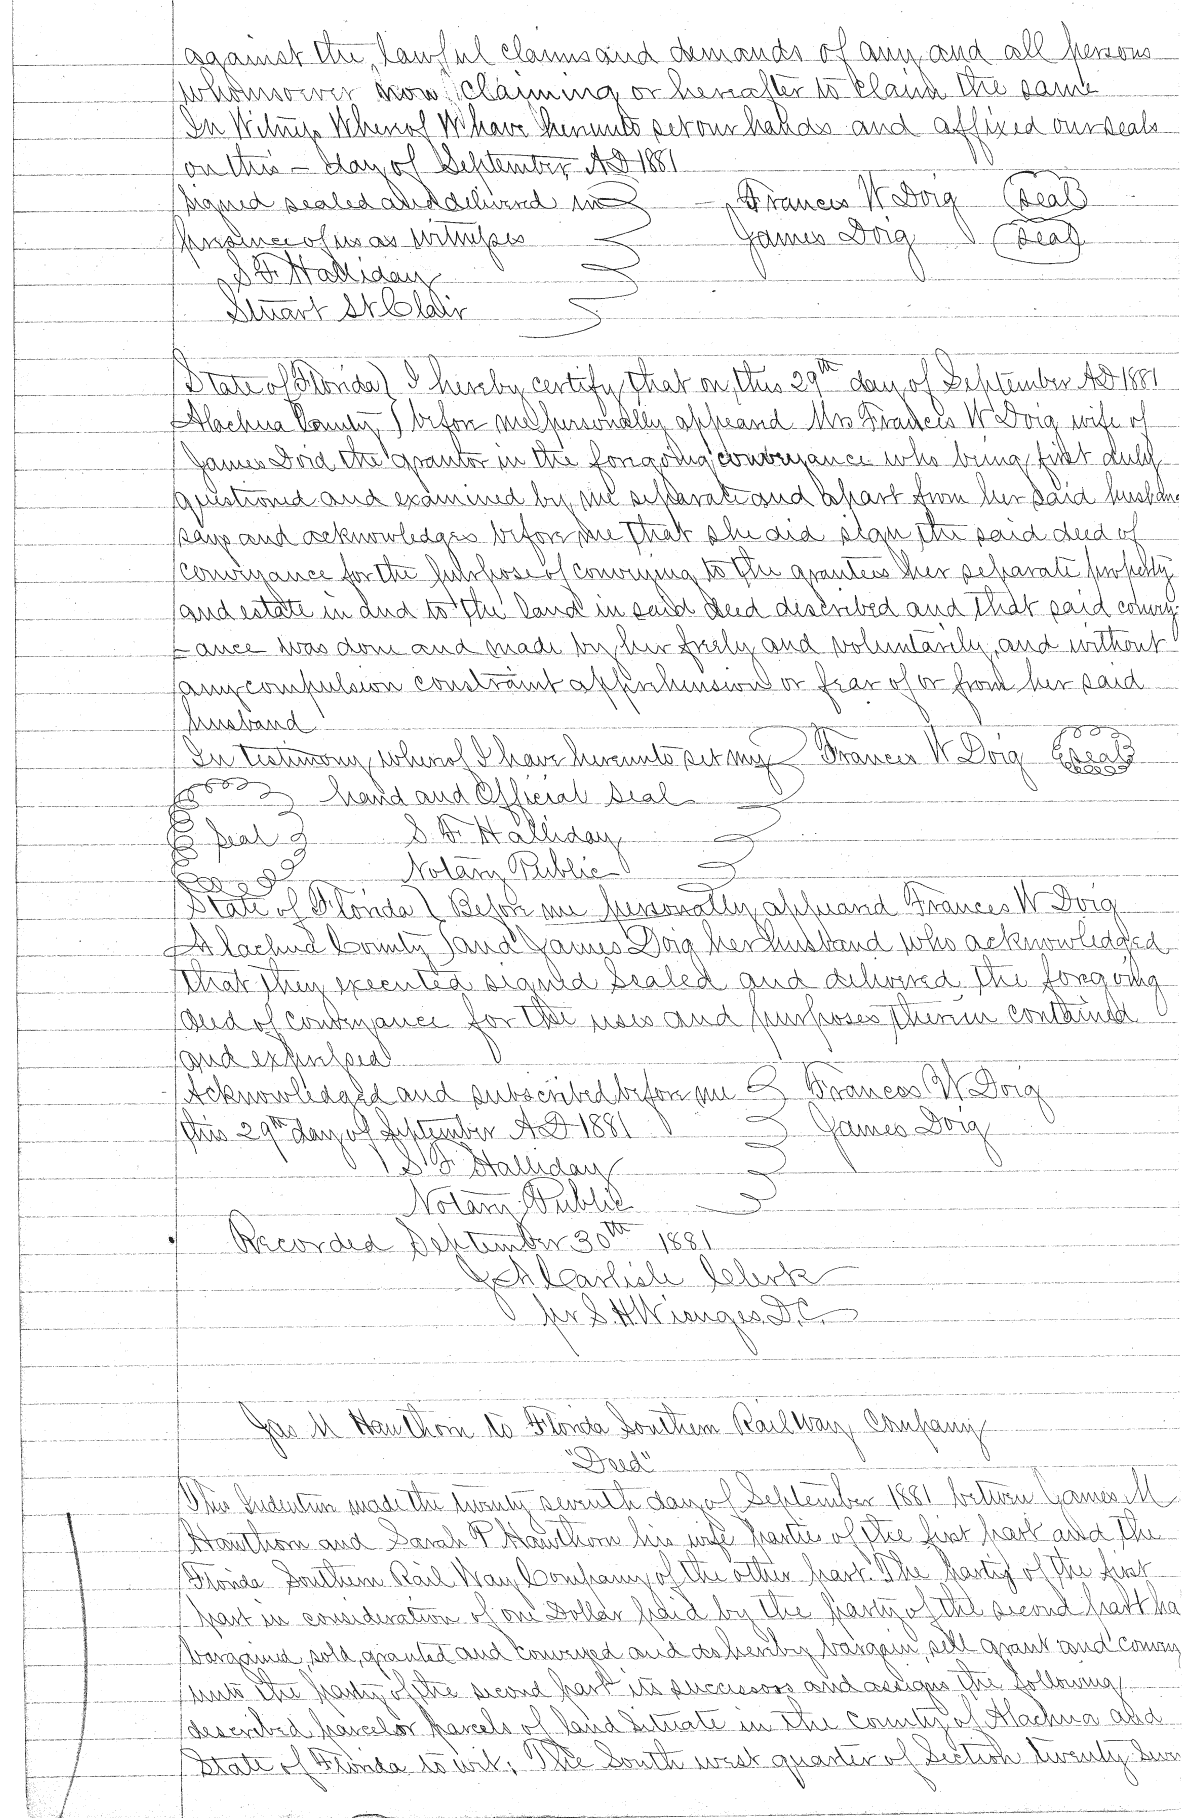 against the lawful claims and demands of any and all persons
whomsoever now claiming or hereafter to claim the same
In Witness Whereof We have hereunto set our hands and affixed our seals
on this – day of September AD 1881
signed sealed and delivered in – Francis W Doig (seal)
presence of us as witnesses James Doig (seal)
S F Halliday
Stuart St Clair
State of Florida } I hereby certify that on this 29th day of September AD 1881
Alachua County } before me personally appeared Mrs Francis W Doig wife of
James Doid the grantor in the foregoing conveyance who being first duly
questioned and examined by me separate and apart from her said husband
says and acknowledges before me that she did sign the said deed of
conveyance for the purpose of conveying to the grantees her separate property
and estate in and to the land in said deed described and that said convey
-ance was done and made by her freely and voluntarily, and without
any compulsion constraint apprehension or fear of or from her said
husband
In testimony whereof I have hereunto set my Francis W Doig seal
hand and Official Seal
Seal S F Halliday
Notary Public
State of Florida } Before me personally appeared Frances W Doig
Alachua County } and James Doig her husband who acknowledged
that they executed signed sealed and delivered the foregoing
deed of conveyance for the uses and purposes therein contained
and expressed
Acknowledged and subscribed before me Frances W Doig
this 29th day of September AD 1881 James Doig
S F Halliday
Notary Public
Recorded September 30th 1881
J A Carlisle Clerk
per S. H. Wienges D.C.
Jas M Hawthorn to Florida Southern Rail Way Company
"Deed"
This Indenture made the twenty seventh day of September 1881 between James M
Hawthorn and Sarah P Hawthorn his wife parties of the first part and the
Florida Southern Rail Way Company of the other part. The party of the first
part in consideration of one Dollar paid by the party of the second part ha
bargained, sold, granted and conveyed and do hereby bargain, sell grant and convey
unto the party of the second part its successors and assigns the following
described parcel or parcels of land situate in the county of Alachua and
State of Florida to wit; The South west quarter of Section twenty